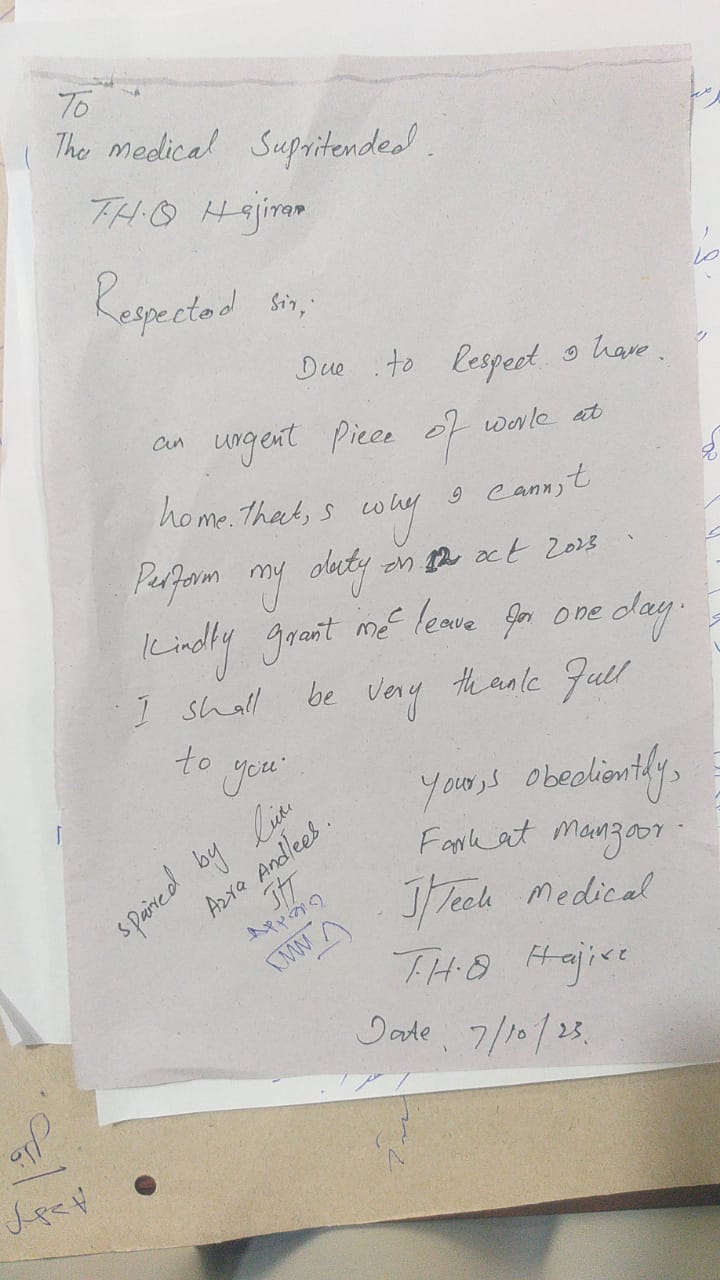 To
The medical Supritended.
T.H.Q Hajira
Respected Sir,
Due to Respect I have
an urgent Piece of work at
home. That,s why I cann,t
Perform my duty on 12 oct 2023
Kindly grant me leave for one day.
I shall be very thank full
to you.
your,s obediently,
Farhat Manzoor.
J/Tech Medical
T.H.Q Hajira
Date. 7/10/23.
spaired by
Azra Andleeb.
J/T